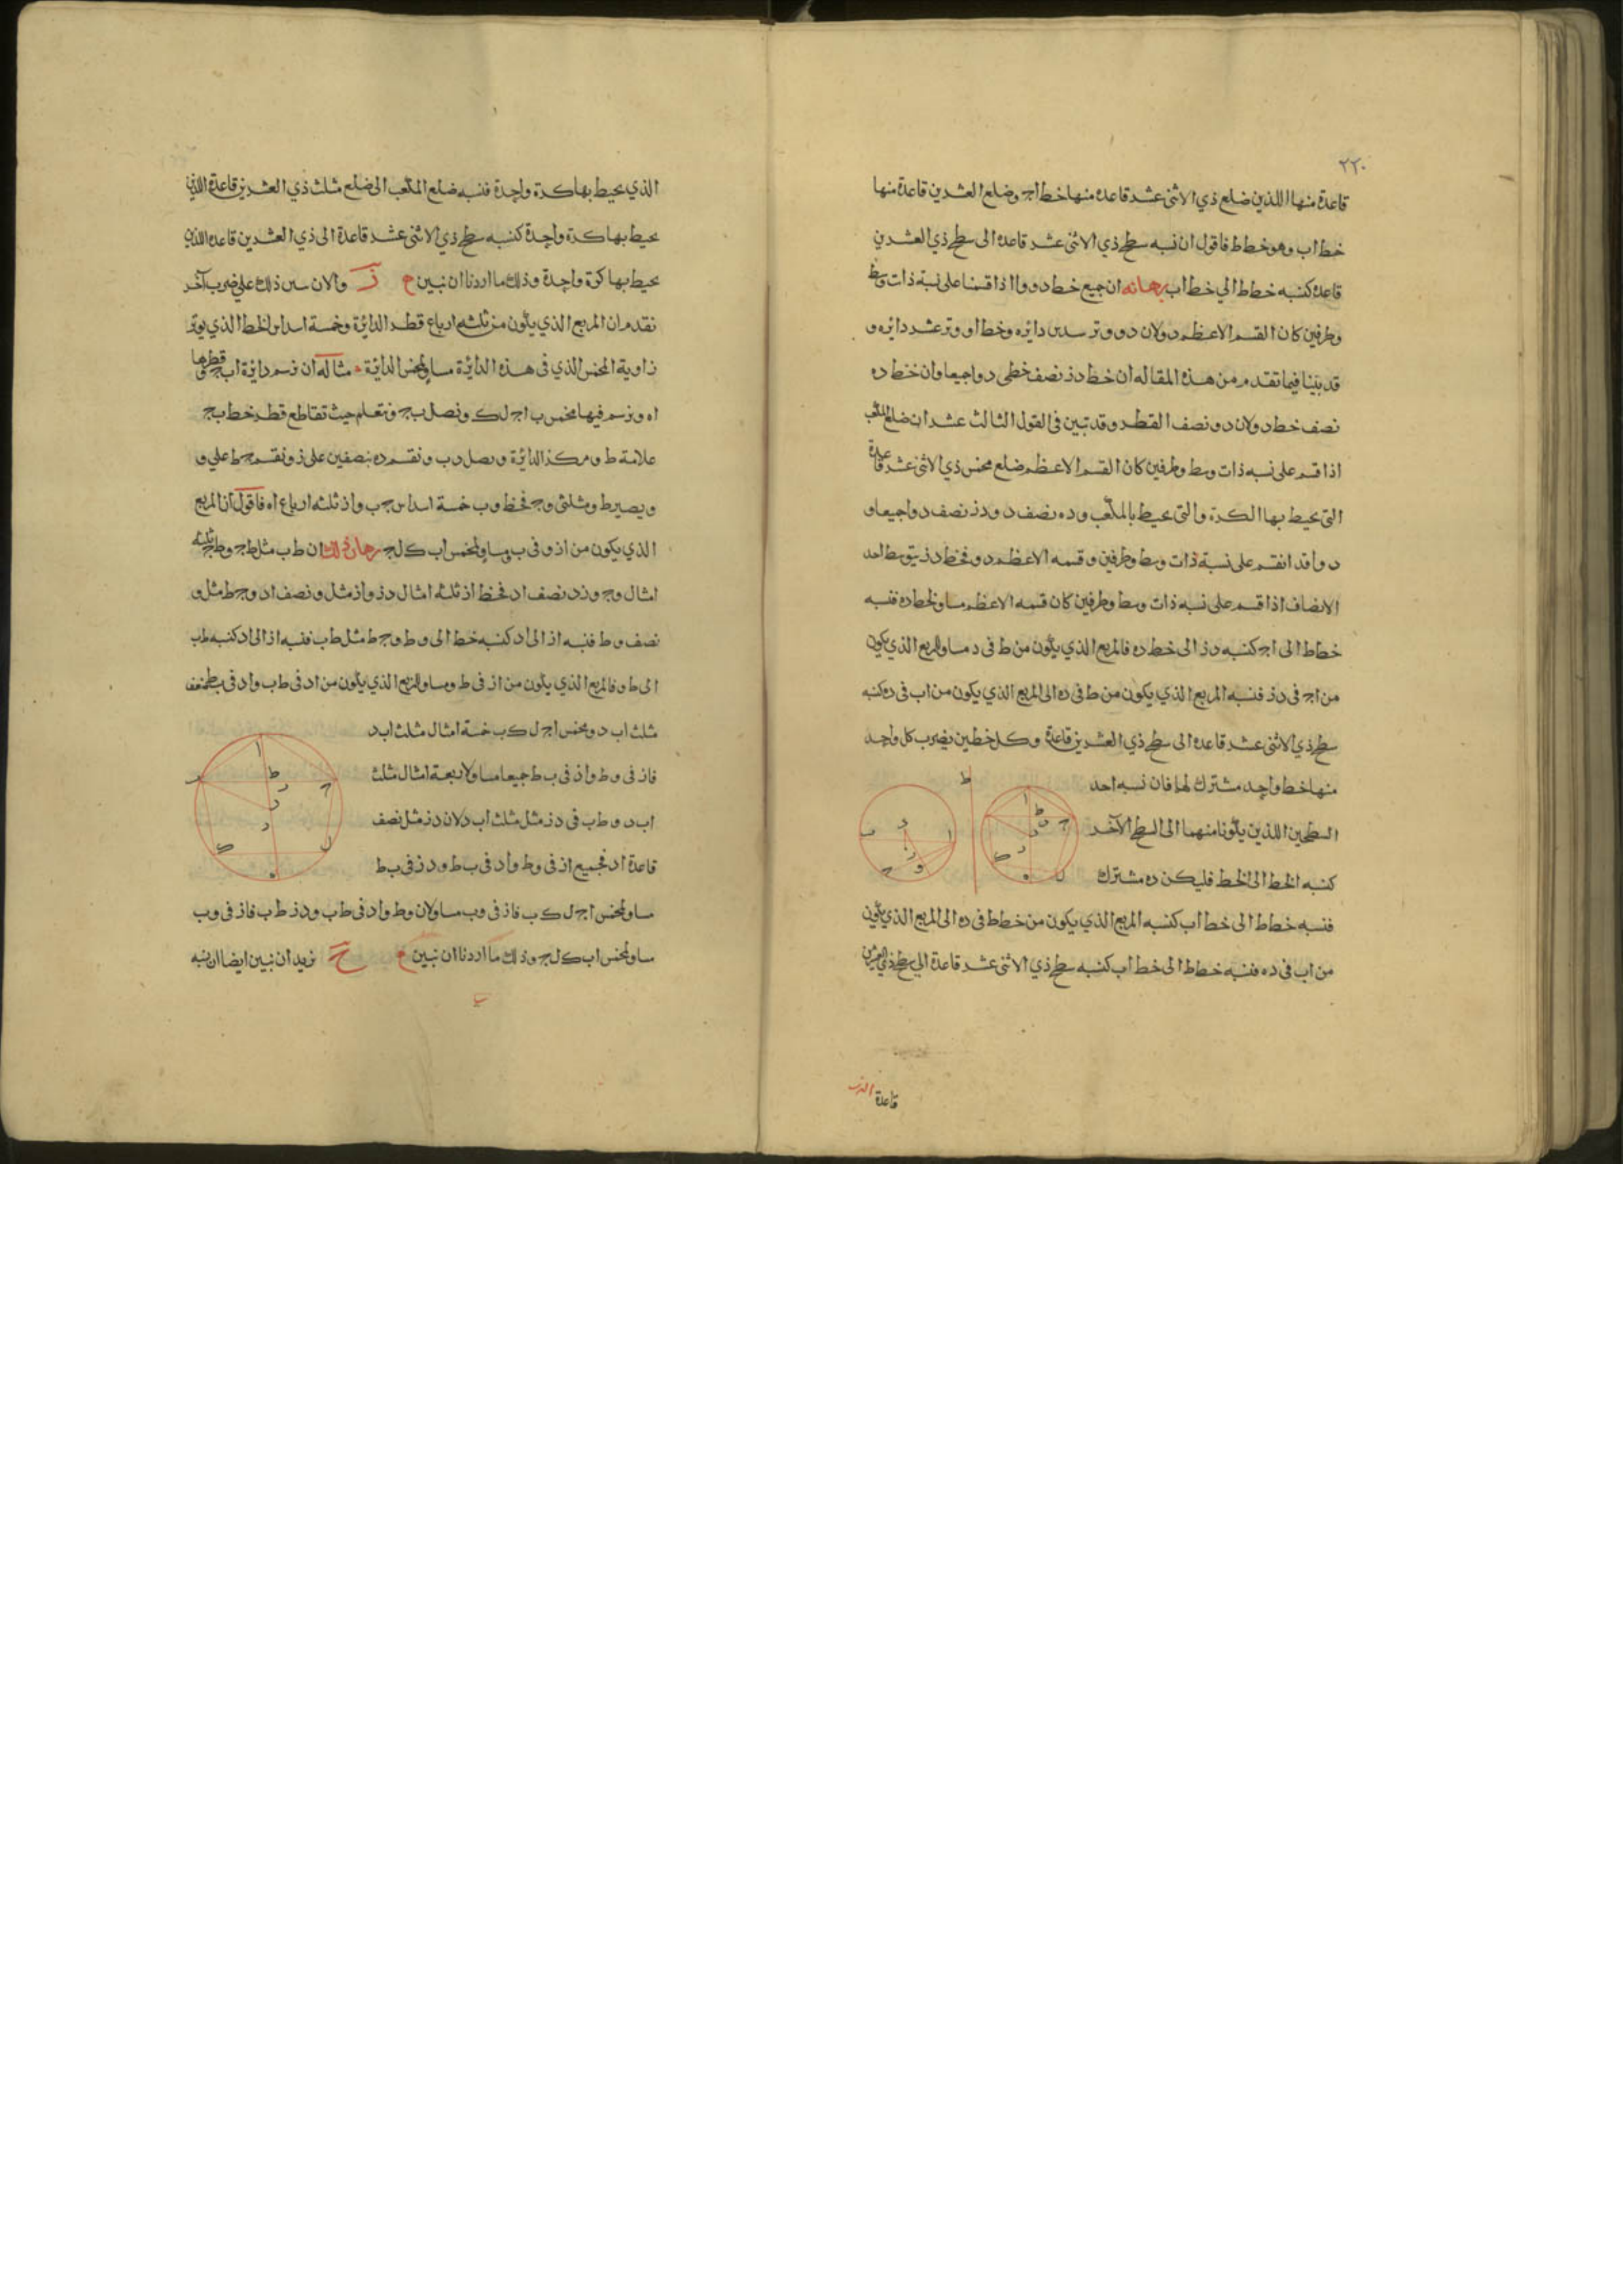 ٢٢٠
قاعدة منها اللذين ضلع ذي الاثنى عشر قاعدة منها خط اج وضلع العشرين قاعدة منها
خط اب وهو خط ط فاقول ان نسبه سطح ذي الاثنى عشر قاعده الى سطح ذي العشرين
قاعدة كنسبه خط ط الي خط اب برهانه ان جميع خط د و وا اذا قسمنا على نسبة ذات وسط
وطرفين كان القسم الاعظم د و لان د و وتر سدس دائره وخط او وتر عشر دائره و
قد بينا فيما تقدم من هذه المقاله ان خط د ز نصف خطى د و ا جميعا وان خط د ه
نصف خط د و لان د و نصف القطر وقد تبين فى القول الثالث عشر ان ضلع المكعب
اذا قسم على نسبه ذات وسط وطرفين كان القسم الاعظم ضلع مخمس ذي الاثنى عشر قاعدة
التى يحيط بها الكرة والتى يحيط بالمكعب و د ه نصف د و د ز نصف د و ا جميعا و
د و ا قد انقسم على نسبة ذات وسط وطرفين وقسمه الاعظم د و فخط د ز يتوسط احد
الانصاف اذا قسم على نسبه ذات وسط وطرفين كان قسمه الاعظم مساو لخط د ه فنسبه
خط ط الى اج كنسبه د ز الى خط د ه فالمربع الذي يكون من ط فى د مساو للمربع الذي يكون
من اج فى د ز فنسبه المربع الذي يكون من ط فى د ه الى المربع الذي يكون من اب فى د ه كنسبه
سطح ذي الاثنى عشر قاعده الى سطح ذي العشرين قاعدة وكل خطين يضرب كل واحد
منها خط واحد مشترك لها فان نسبه احد
السطحين اللذين يكونا منهما الى السطح الآخر
كنسبه الخط الى الخط فليكن د ه مشترك
فنسبه خط ط الى خط اب كنسبه المربع الذي يكون من خط ط فى د ه الى المربع الذي يكون
من اب فى د ه فنسبه خط ط الى خط اب كنسبه سطح ذي الاثنى عشر قاعدة الي سطح ذي العشرين
قاعدة
الذي يحيط بها كرة واحدة فنسبه ضلع المكعب الى ضلع مثلث ذي العشرين قاعدة اللذين
يحيط بها كرة واحدة كنسبه سطح ذي الاثنى عشر قاعدة الى ذي العشرين قاعده اللذين
يحيط بها كرة واحدة وذلك ما اردنا ان نبين ز والان ذلك على ضرب آخر
نقدم ان المربع الذي يكون من ثلثه ارباع قطر الدائرة وخمسة اسداس الخط الذي يوتر
زاوية المخمس الذي فى هذه الدائرة مساو لمخمس الدائرة مثاله ان نرسم دائرة اب ج وقطرها
ا ه ونرسم فيها مخمس ب ا ج ل ك ونصل ب ج ونتعلم حيث تقاطع قطر خط ب ج
علامة ط و مركز الدائرة ونصل د ب ونقسم د ه بنصفين على ز ونقسم ج ط على و
ويصير ط و مثلثى و ج فخط و ب خمسة اسداس ج ب و ا ز ثلثه ارباع ا ه فاقول ان المربع
الذي يكون من ا ز و فى ب و مساو لمخمس ا ب ك ل ج برهان ذلك ان ط ب مثل ط ج و ط ج ثلثه
امثال و ج و ز د نصف ا د فخط ا ز ثلثه امثال د ز و ا ز مثل ونصف ا د و ج ط مثل و
نصف و ط فنسبه ا ز الى ا د كنسبه خط الى و ط و ج ط مثل ط ب فنسبه ا ز الى ا د كنسبه ط ب
الى ط و فالمربع الذي يكون من ا ز فى ط و مساو للمربع الذي يكون من ا د فى ط ب و ا د فى ب ط
مثلث اب د ومخمس اج ل ك ب خمسة امثال مثلث اب د
فاز فى و ط و ا ز فى ب ط جميعا مساو لاربعة امثال مثلث
اب د و ط ب فى د ز مثل مثلث اب د لان د ز مثل نصف
قاعدة ا د فجميع ا ز فى و ط و ا د فى ب ط و د ز فى ب ط
مساو لمخمس اج ل ك ب فا ز فى و ب مساو لان و ط و ا د فى ط ب و د ز ط ب فا ز فى و ب
مساو لمخمس اب ك ل ج وذلك ما اردنا ان نبين ح نريد ان نبين ايضا ان نسبه